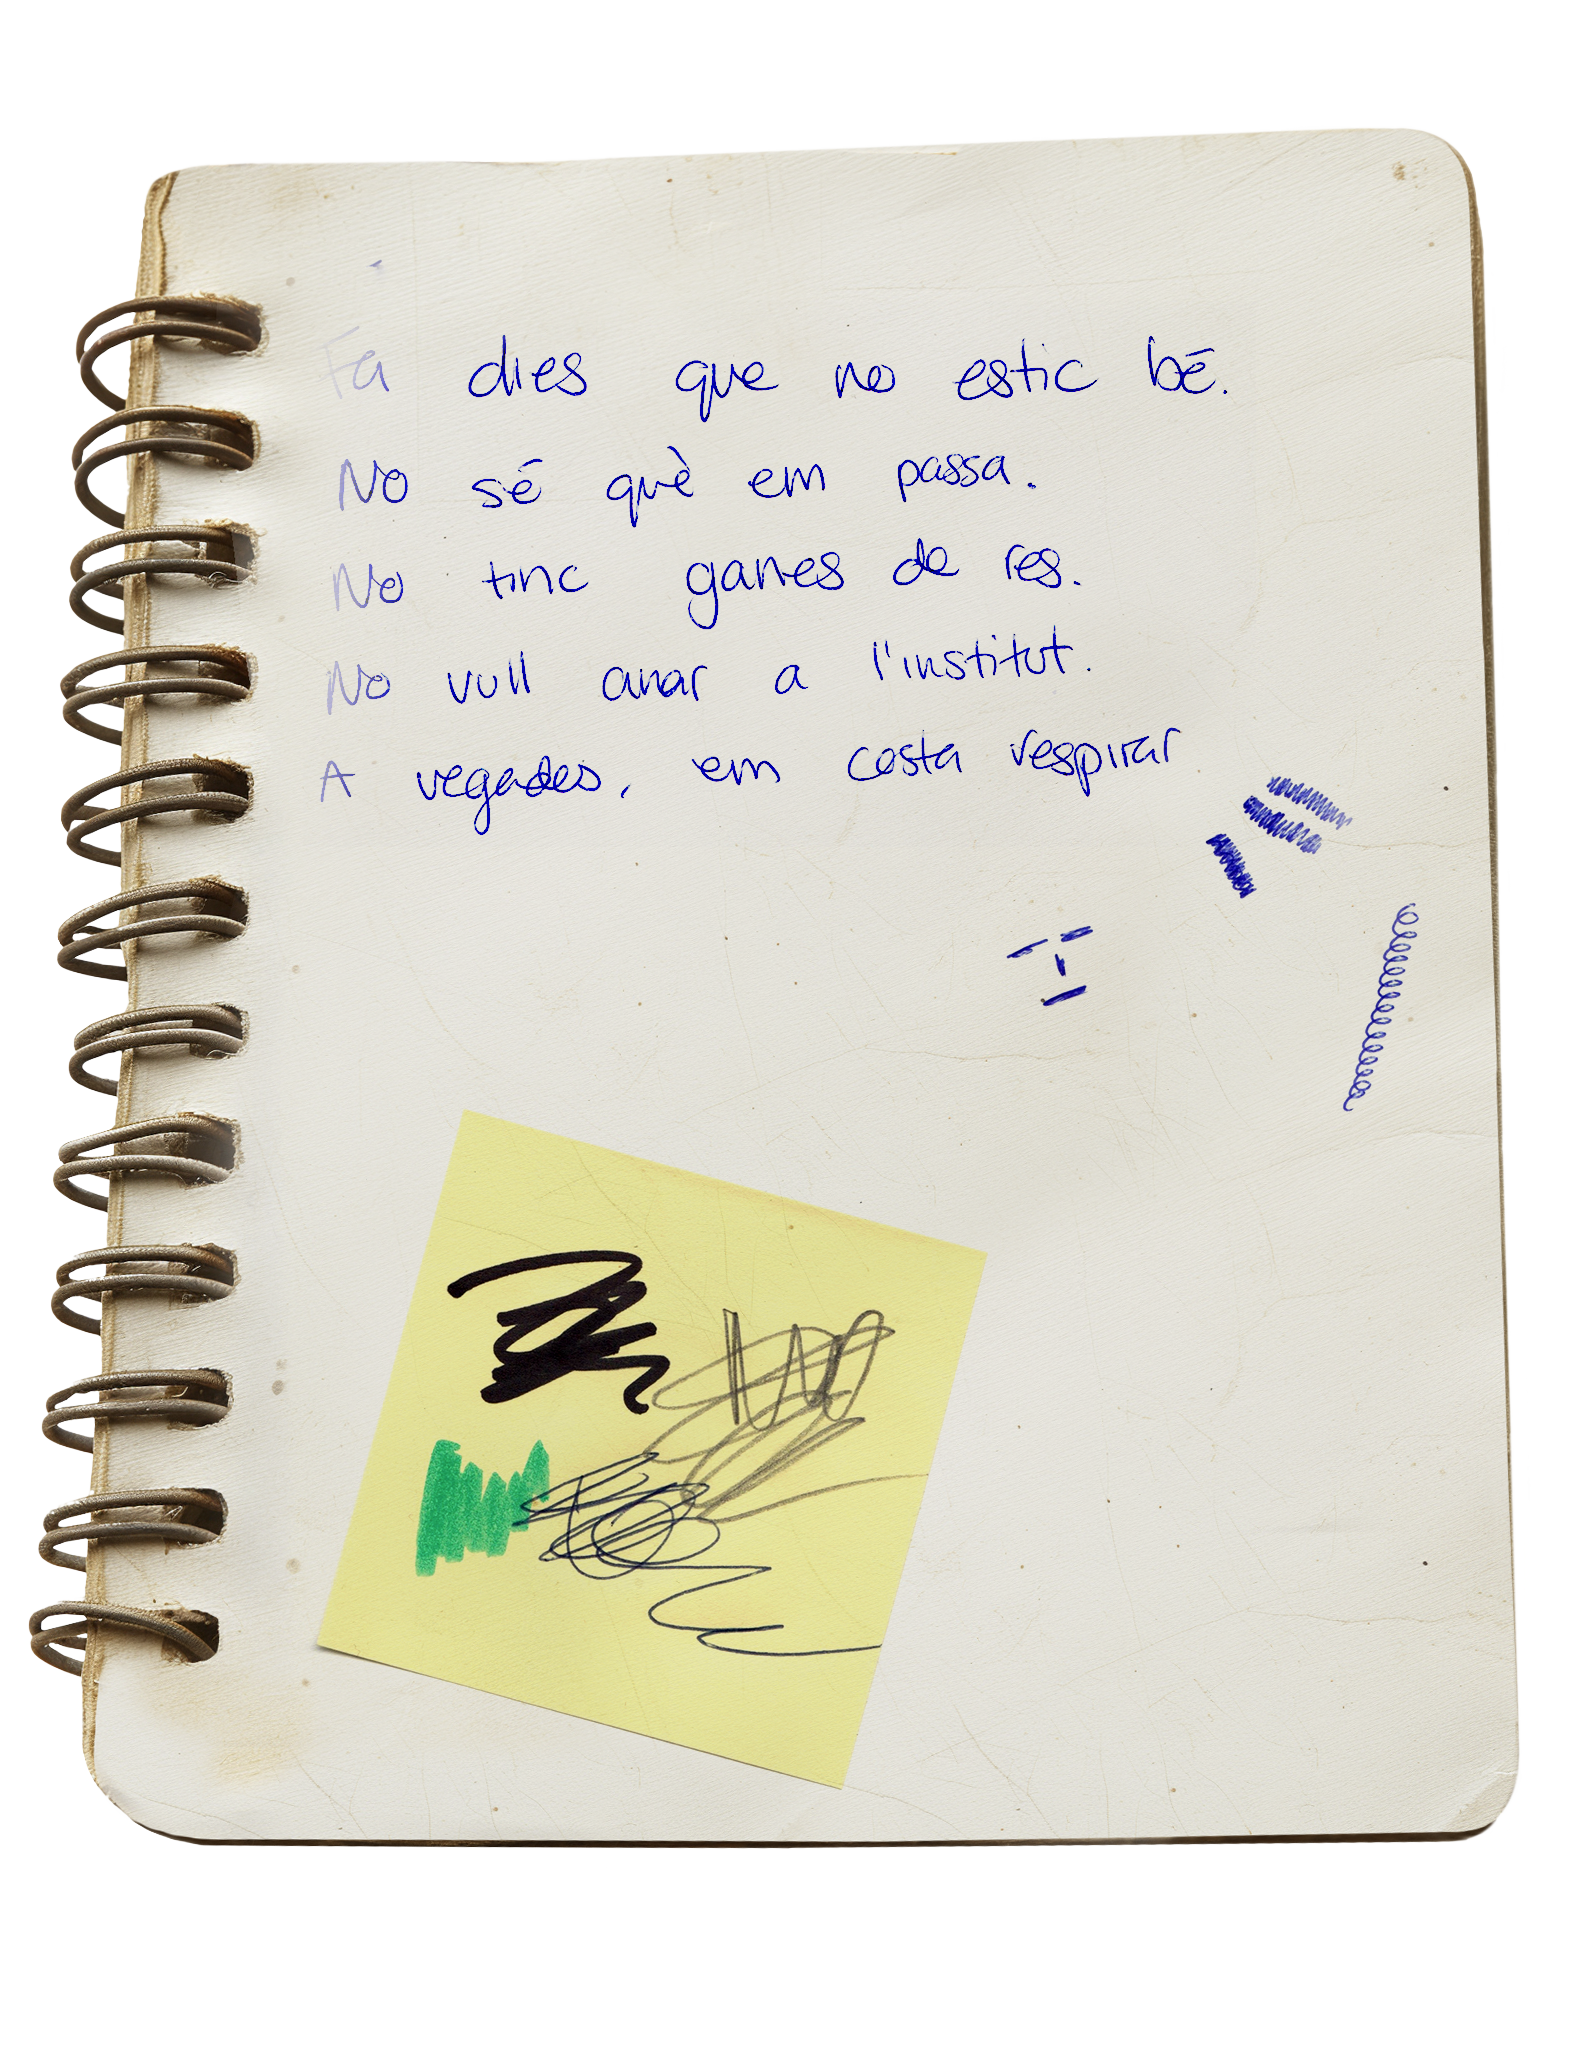 Fa dies que no estic bé.
No sé què em passa.
No tinc ganes de res.
No vull anar a l'institut.
A vegades, em costa respirar